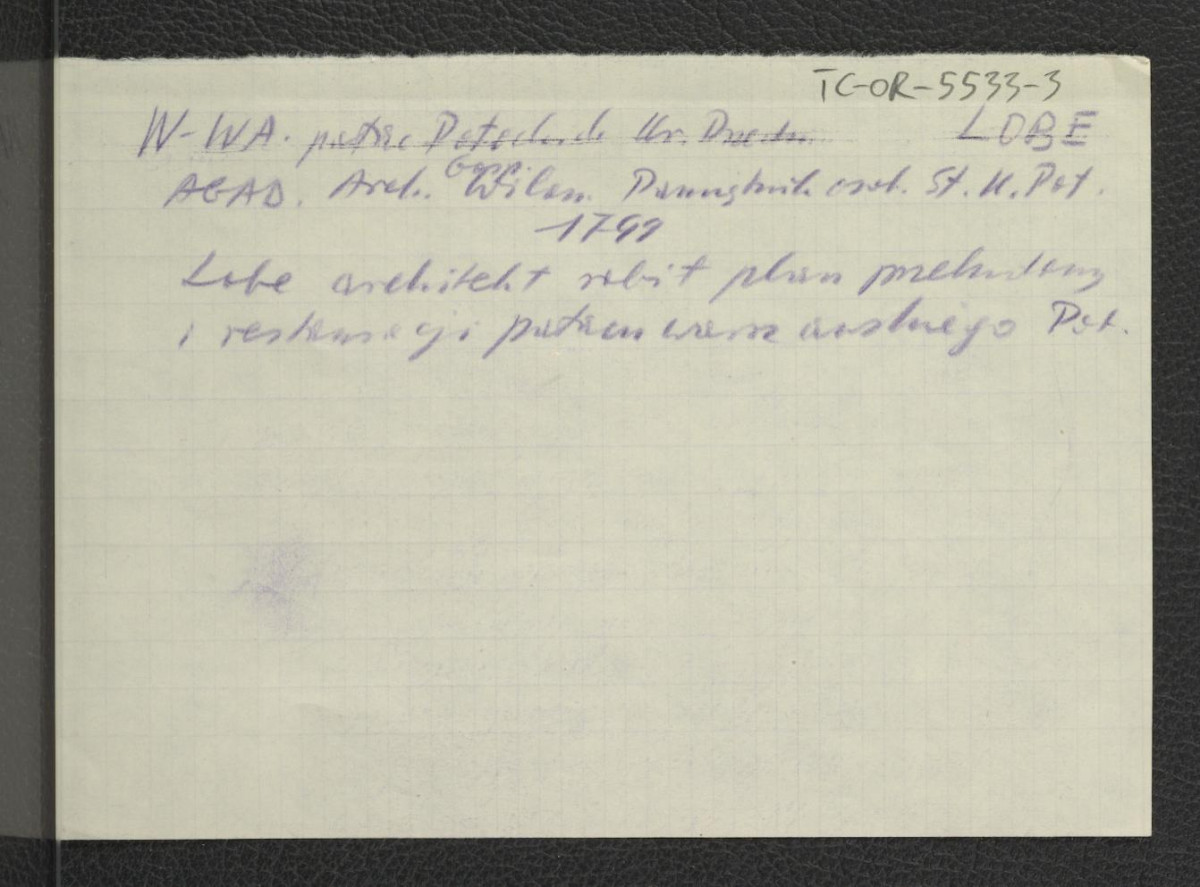 TC-OR-5533-3
W-WA. pałac Potockich Kr. Przedm. LOBE
AGAD. Arch. Gosp. Wilan. Pamiętnik osob. St. K. Pot.
1799
Lobe architekt robił plan przebudowy
i restauracji pałacu warszawskiego Pot.